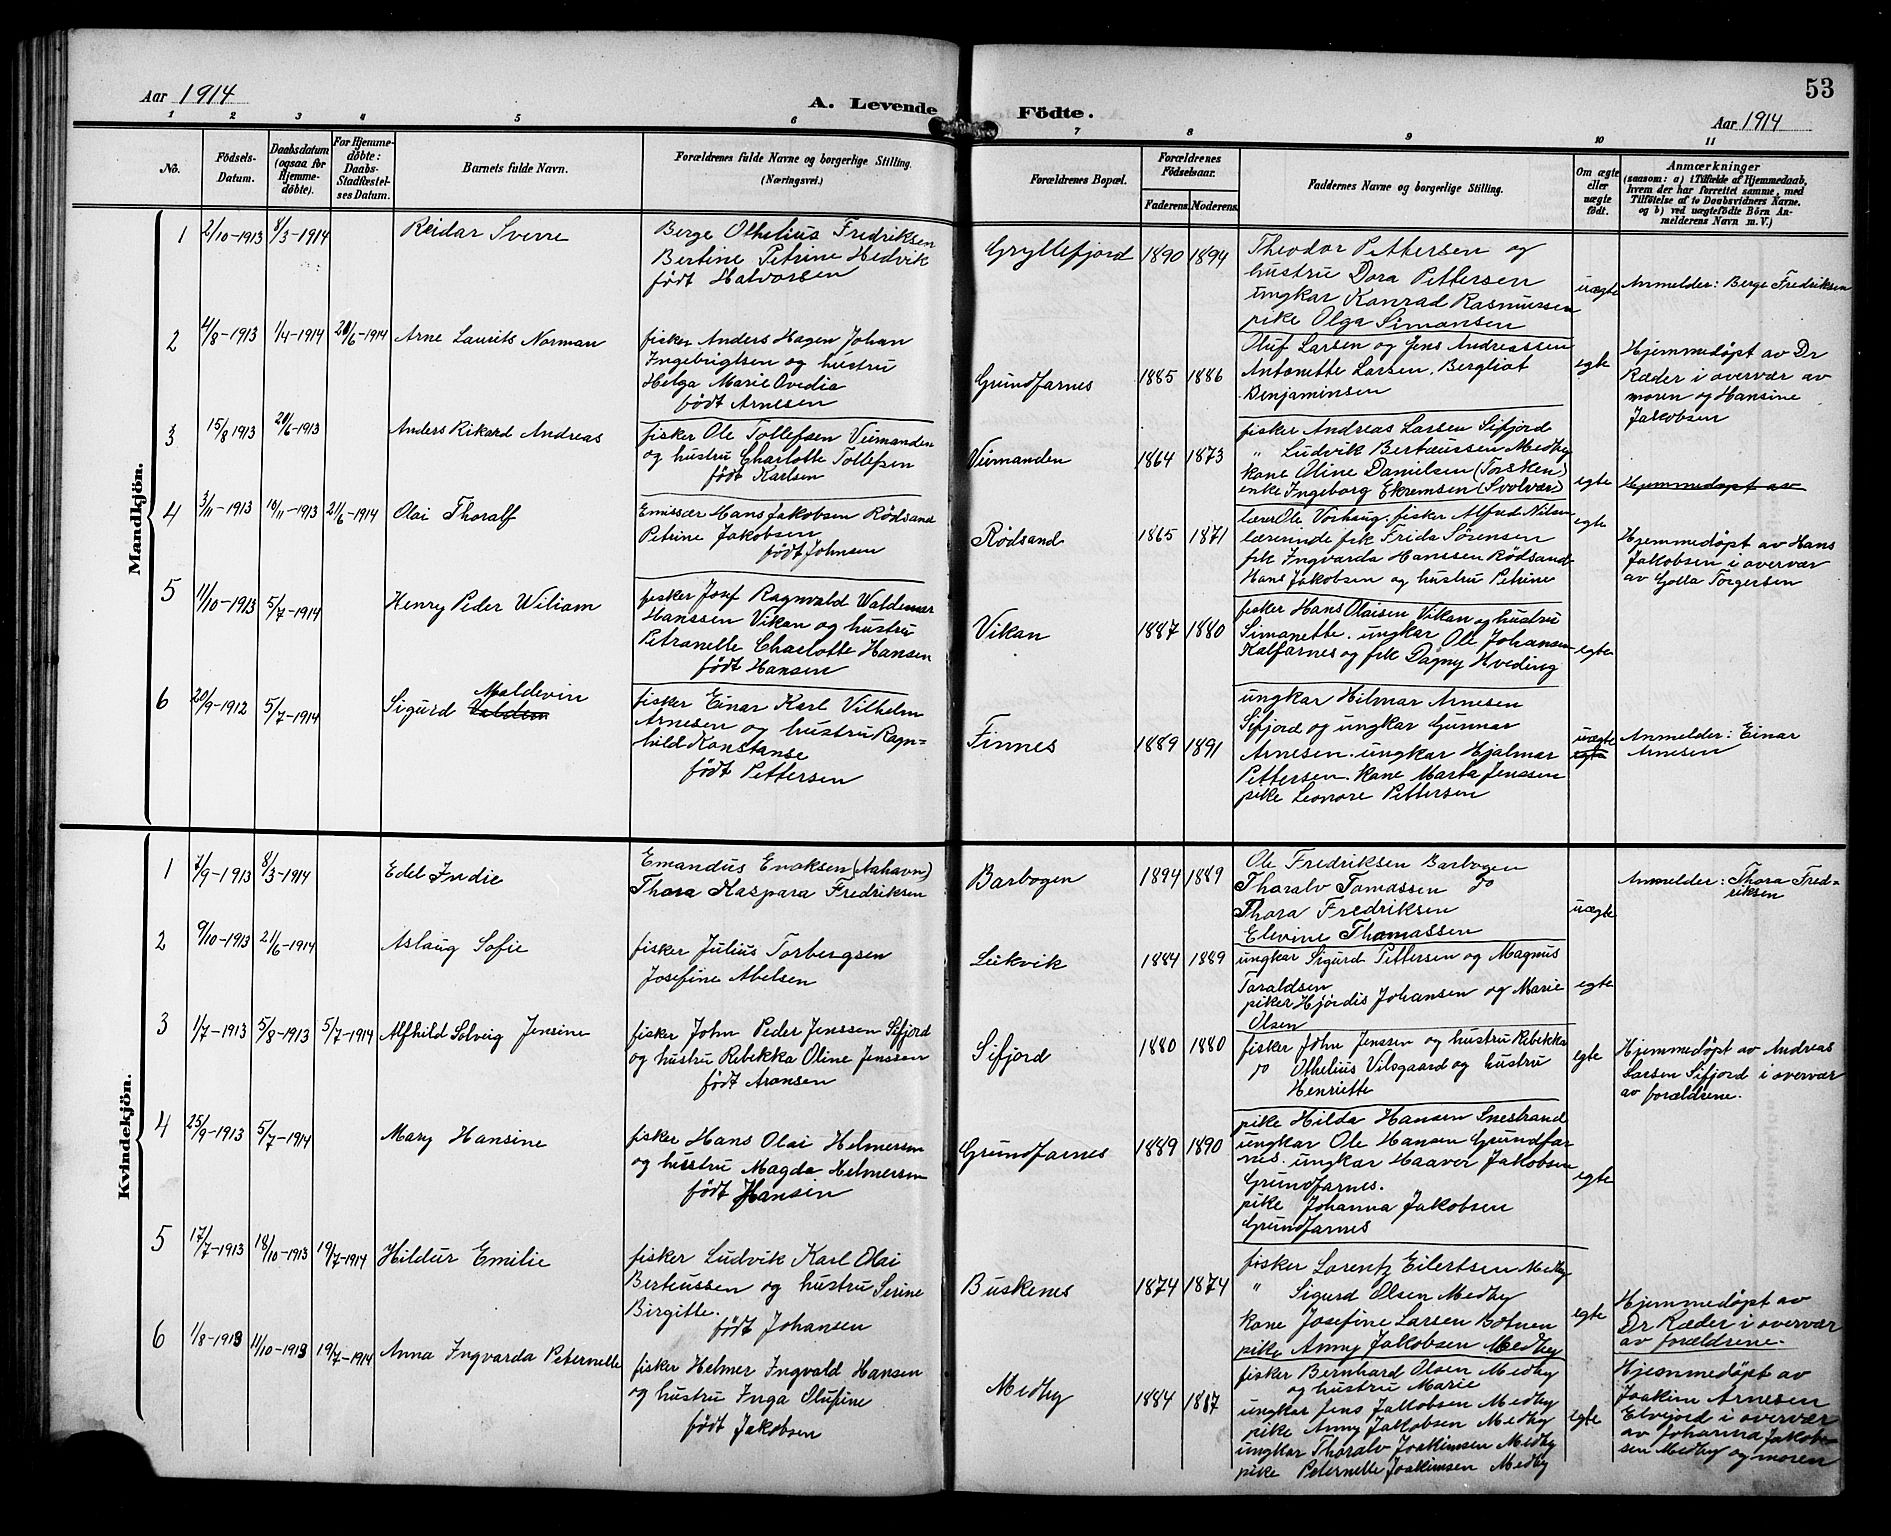 53
Aar 1914
A. Levende Födte.
Aar 1914
1 2 3 4 5 6 7 8 9 10 11
No.
Födsels-Datum.
Daabsdatum (ogsaa for Hjemme-døbte).
For Hjemme-døbte: Daabs-Stadfæstelses Datum.
Barnets fulde Navn.
Forældrenes fulde Navne og borgerlige Stilling.
(Næringsvei.)
Forældrenes Bopæl.
Forældrenes Födselsaar.
Faderens. Moderens.
Faddernes Navne og borgerlige Stilling.
Om ægte eller uægte født.
Anmærkninger
(saasom: a) i Tilfælde af Hjemmedaab,
hvem der har forrettet samme, med
Tilføielse af to Daabsvidners Navne.
og b) ved uægtefödte Börn An-
melderens Navn m. V.)
Mandkjön.
1 2/10-1913 8/3-1914 Reidar Sverre
Berge Othelius Fredriksen
Bertine Petrine Hedvik
født Halvorsen
Gryllefjord 1890 1894
Theodor Pettersen og
hustru Dora Pettersen
ungkar Konrad Rasmussen
pike Olga Simonsen
uægte
Anmelder: Berge Fredriksen
2 4/8-1913 1/4-1914 20/6-1914 Arne Laurits Norman
fisker Anders Hagen Johan
Ingebrigtsen og hustru
Helga Marie Ovedia
født Arnesen
Grundfarnes 1885 1886
Oluf Larsen og Jens Andreassen
Antonette Larsen. Bergliot
Benjaminsen
egte
Hjemmedøpt av Dr
Ræder i overvær av
moren og Hansine
Jakobsen
3 15/8 1913 20/6-1913 Anders Rikard Andreas
fisker Ole Tollefsen Veimanden
og hustru Charlotte Tollefsen
født Karlsen
Veimanden 1864 1873
fisker Andreas Larsen Sifjord
" Ludvik Berteussen Medby
kone Oline Danielsen (Torsken)
enke Ingeborg Ekremsen (Svolvær)
egte
Hjemmedøpt av
4 3/11-1913 10/11-1913 21/6-1914 Olai Thoralf
Emissær Hans Jakobsen Rødsand
Petrine Jakobsen
født Johnsen
Rødsand 1865 1871
lærer Ole Vorhaug, fisker Alfred Nilsen
lærerinde frk Frida Sörensen
frk Ingvarda Hanssen Rødsand
Hans Jakobsen og hustru Petrine
egte
Hjemmedøpt av Hans
Jakobsen i overvær
av Golla Torgersen
5 11/10-1913 5/7-1914 Henry Peder Wiliam
fisker Josef Ragnvald Waldemar
Hanssen Vikan og hustru
Petranelle Charlotte Hansen
født Hansen
Vikan 1887 1880
fisker Hans Olaisen Vikan og hustru
Simonette. ungkar Ole Johansen
Kalfarnes og frk Dagny Hveding
egte
6 20/9-1912 5/7-1914 Sigurd Valdem Maldevin
fisker Einar Karl Vilhelm
Arnesen og hustru Ragn-
hild Konstanse
født Pettersen
Finnes 1889 1891
ungkar Hilmar Arnesen
Sifjord og ungkar Gunnar
Arnesen. ungkar Hjalmar
Pettersen. Kone Marta Jenssen
pike Leonore Pettersen
uægte
egte
Anmelder: Einar
Arnesen
Kvindekjön.
1 7/9-1913 8/3-1914 Edel Indie
Emandus Enoksen (Aahavn)
Thora Kaspara Fredriksen
Barbogen 1894 1889
Ole Fredriksen Barbogen
Thoralv Tomassen do
Thora Fredriksen
Elevine Thomassen
uægte
Anmelder: Thora Fred-
riksen
2 9/10-1913 21/6-1914 Aslaug Sofie
fisker Julius Torbergsen
Josefine Abelsen
Leikvik 1884 1889
ungkar Sigurd Pettersen og Magnus
Taraldsen
piker Hjørdis Johansen og Marie
Olsen
egte
3 1/7-1913 5/8-1913 5/7-1914 Alfhild Solveig Jensine
fisker John Peder Jenssen Sifjord
og hustru Rebekka Oline Jenssen
født Aronsen
Sifjord 1880 1880
fisker John Jenssen og hustru Rebekka
do Othelius Vilsgaard og hustru
Henriette
egte
Hjemmedøpt av Andreas
Larsen Sifjord i overvær
av forældrene.
4 25/9-1913 5/7-1914 Mary Hansine
fisker Hans Olai Helmersen
og hustru Magda Helmersen
født Hansen
Grundfarnes 1889 1890
pike Hilda Hansen Snestrand
ungkar Ole Hansen Grundfar-
nes. ungkar Haaver Jakobsen
Grundfarnes.
pike Johanna Jakobsen
Grundfarnes
egte
5 17/7-1913 18/10-1913 19/7-1914 Hildur Emilie
fisker Ludvik Karl Olai
Berteussen og hustru Serine
Birgitte.
født Johansen
Buskenes 1874 1874
fisker Lorentz Eilertsen Medby
" Sigurd Olsen Medby
kone Josefine Larsen Botnen
pike Anny Jakobsen Medby
egte
Hjemmedøpt av
Dr Ræder i overvær
av forældrene.
6 1/8-1913 11/10-1913 19/7-1914 Anna Ingvarda Peternelle
fisker Helmer Ingvald Hansen
og hustru Inga Olufine
født Jakobsen
Medby 1884 1887
fisker Bernhard Olsen Medby
og hustru Marie
ungkar Jens Jakobsen Medby
pike Anny Jakobsen Medby
ungkar Thoralv Joakimsen Medby
pike Peternelle Joakimsen Medby
egte
Hjemmedøpt av
Joakim Arnesen
Elvejord i overvær
av Johanna Jakob-
sen Medby og moren